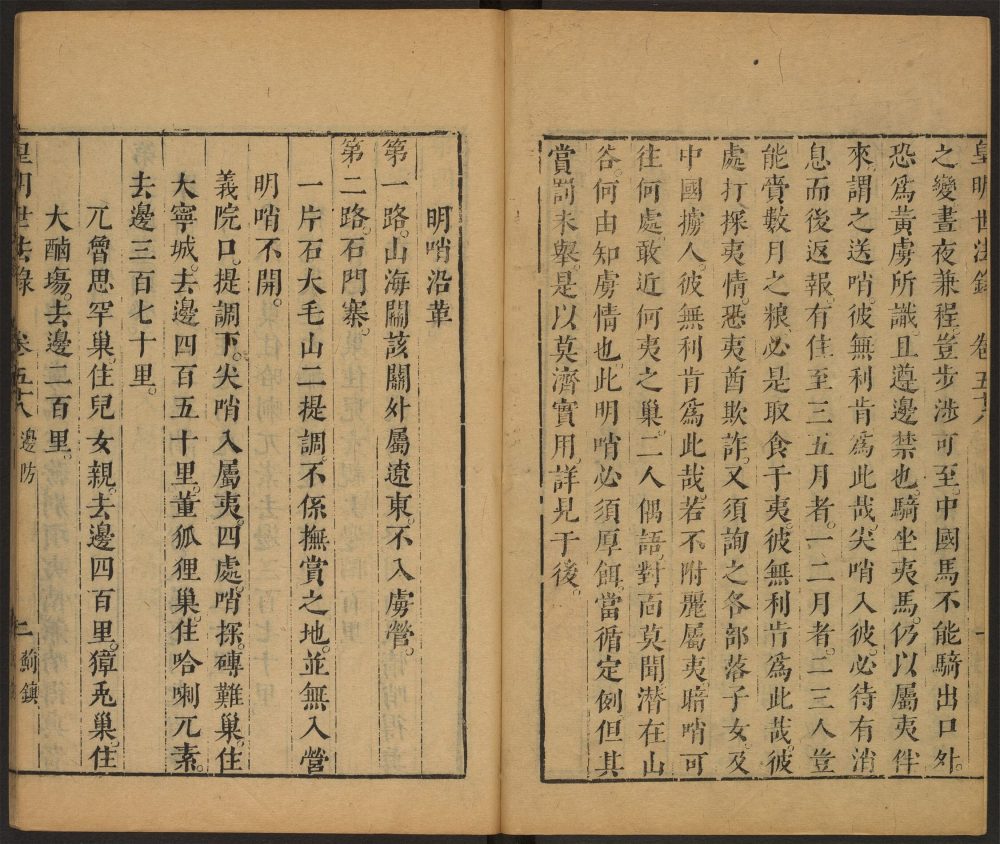 皇明世法錄 卷五十八
之變晝夜兼程。豈步涉可至。中國馬不能騎出口外。
恐爲黃虜所識。且遵邊禁也。騎坐夷馬。仍以屬夷伴
來。謂之送哨。彼無利肯爲此哉。尖哨入彼。必待有消
息而後返報。有住至三五月者。一二月者。二三人豈
能賫數月之粮。必是取食于夷。彼無利肯爲此哉。彼
處打探夷情。恐夷酋欺詐。又須詢之各部落子女。及
中國擄人。彼無利肯爲此哉。若不附麗屬夷。暗哨可
往何處。敢近何夷之巢。二人偶語。對面莫聞。潛在山
谷。何由知虜情也。此明哨必須厚餌。當循定例。但其
賞罰未舉。是以莫濟實用。詳見于後。
明哨沿革
第一路。山海關該關外屬遼東。不入虜營。
第二路。石門寨。
一片石大毛山二提調。不係撫賞之地。並無入營
明哨不開。
義院口。提調下。尖哨入屬夷。四處。哨探。磚難巢。住
大寧城。去邊四百五十里。董狐狸巢。住哈喇兀素。
去邊三百七十里。
兀魯思罕巢。住兒女親。去邊四百里。獐兎巢。住
大酾塲。去邊二百里。
皇明世法錄 卷五十八 邊防 二 薊鎮